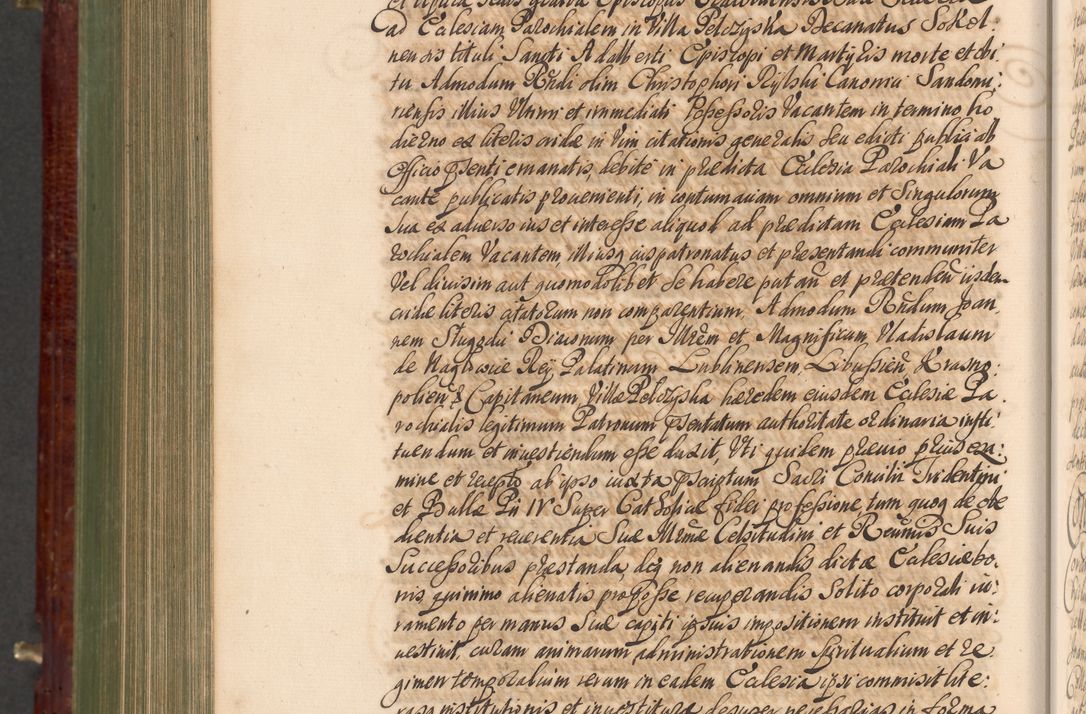 ad Ecclesiam Parochialem in Villa Pelczyska Decanatus Sokol
nensis tituli Sancti Adalberti Episcopi et Martyris morte et obi:
tu Admodum Rñdi olim Christophori Rylski Canonici Sandomi:
riensis illius Ultimi et immediati Possessoris Vacantem in termino ho
dierno ex literis cridæ in Vim citationis generalis seu edicti publici ab
Officio præsenti emanatis, debite in prædicta Ecclesia Parochiali Va
cante publicatis provenienti, in contumaciam omnium et Singulorum
sua ex adverso ius et interesse aliquod ad prædictam Ecclesiam Pa
rochialem Vacantem, illiusq iuspatronatus et præsentandi communiter
Vel divisim aut quomodolibet se habere putañ et prætendeñ iisdem
cridæ literis citatorum non comparentium, Admodum Rñdum Joan,
nem per Illrem et Magnificum Vladislaum
de Naglowice Rey Palatinum Lublinensem, Libusień Krasno:
polień & Capitaneum, Villæ Pelczyska hæredem eiusdem Ecclesiæ Pa
rochialis legitimum Patronum præsentatum authoritate ordinaria insti
tuendum et investiendum esse duxit, Uti quidem prævio prævio exa:
mine et recepta ab ipso iuxta præscriptum Sacri Concilii Tridentini
et Bullæ Pii IV Super Catholicæ fidei professione, tum quoq de obe
dientia et reverentia Suæ Illmæ Celsitudini et Reverendissimis Suis
Successoribus præstanda, deq non alienandis dictæ Ecclesiæ bo,
nis, quinimo alienatis pro posse recuperandis Solito corporali iu:
ramento per manus Suæ capiti ipsius impositionem instituit et in:
vestivit, curam animarum administrationem Spiritualium et re
gimen temporalium rerum in eadem Ecclesia ipsi commisit lite:
ras institutionis et investituræ desuper necessarias in forma